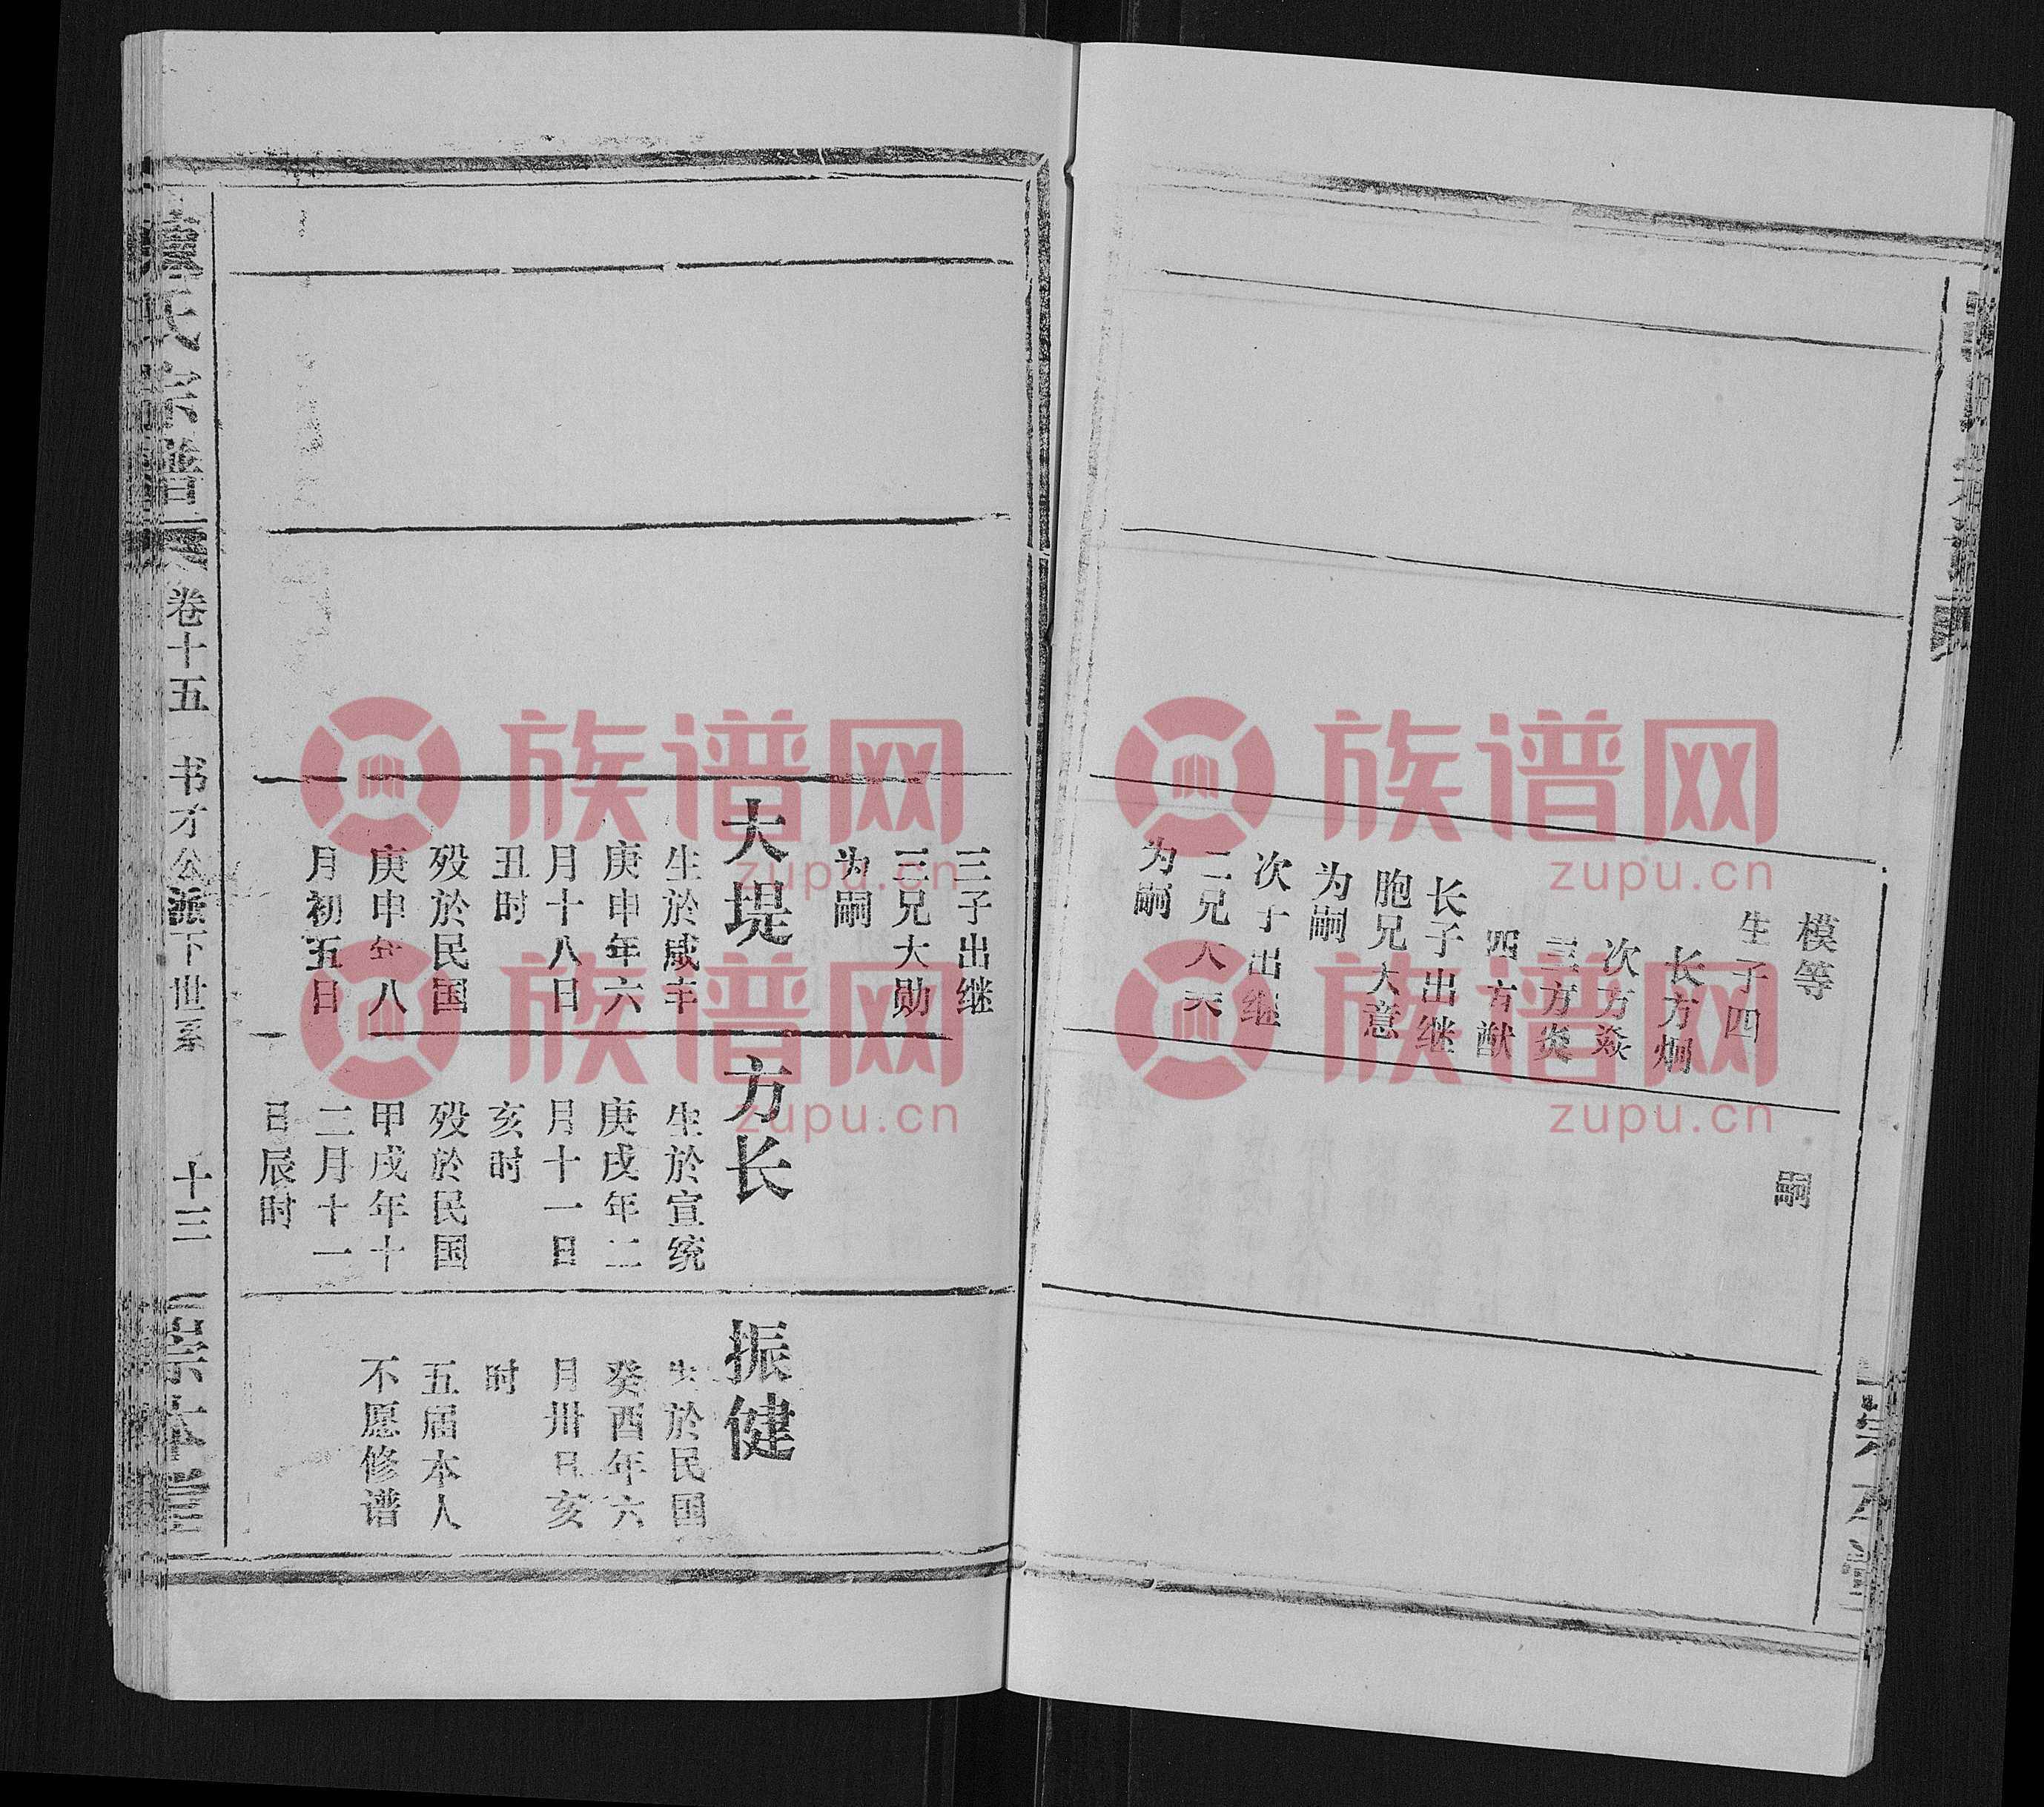 模等
生子四
长方炯
次方焱
三方炎
四方猷
长子出继
胞兄大意
为嗣
次子出继
三兄大
为嗣
嗣
三子出继
三兄大勋
为嗣
大堤
生於咸丰
庚申年六
月十八日
丑时
殁於民国
庚申年八
月初五日
方长
生於宣统
庚戌年二
月十一日
亥时
殁於民国
甲戌年十
二月十一
日辰时
振健
生於民国
癸酉年六
月卅日亥
时
五届本人
不愿修谱
氏宗譜
卷十五
书才公派下世系
十三
崇本堂
族谱网
zupu.cn
族谱网
zupu.cn
族谱网
zupu.cn
族谱网
zupu.cn